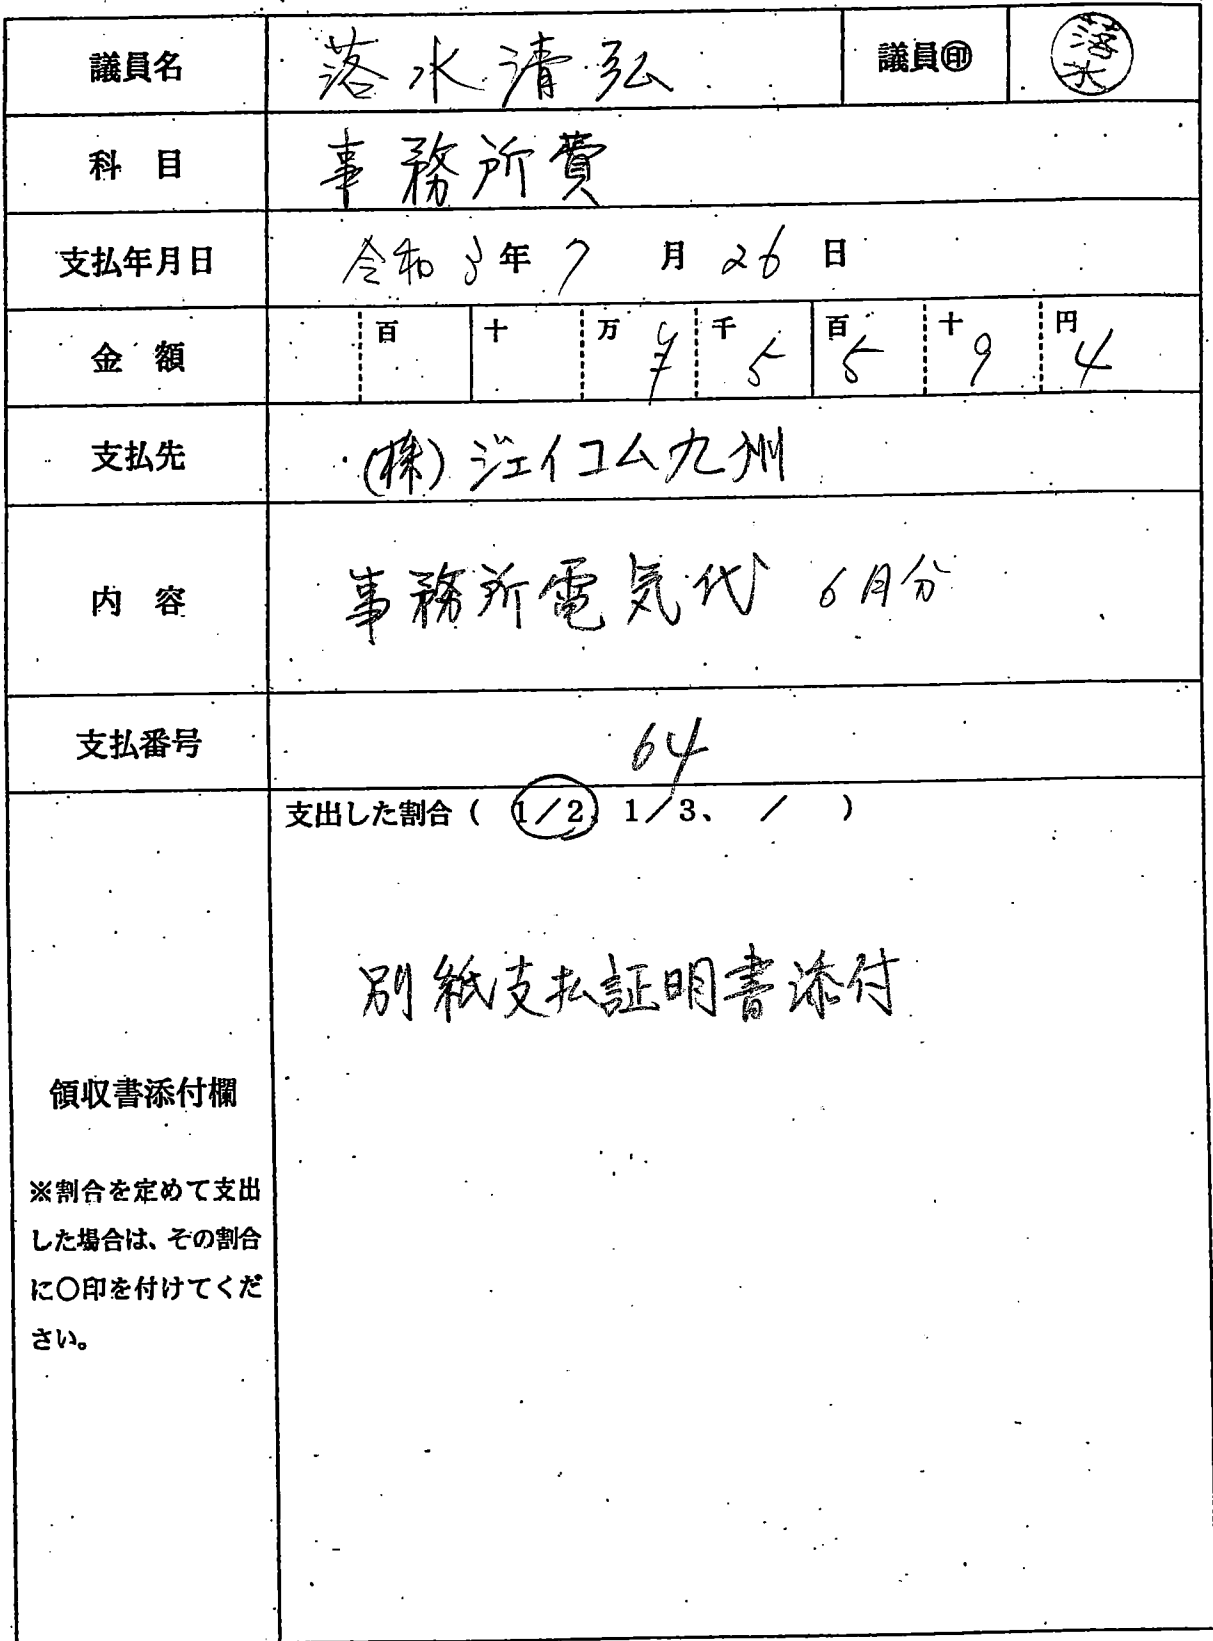 議員名 落水清弘 議員㊞ 落水
科 目 事務所費
支払年月日 令和3年7月26日
金 額 百 十 万 ¥ 千 5 百 5 十 9 円 4
支払先 (株)ジェイコム九州
内 容 事務所電気代 6月分
支払番号 64
支出した割合( 1/2、1/3、 / )
別紙支払証明書添付
領収書添付欄
※割合を定めて支出
した場合は、その割合
に〇印を付けてくだ
さい。